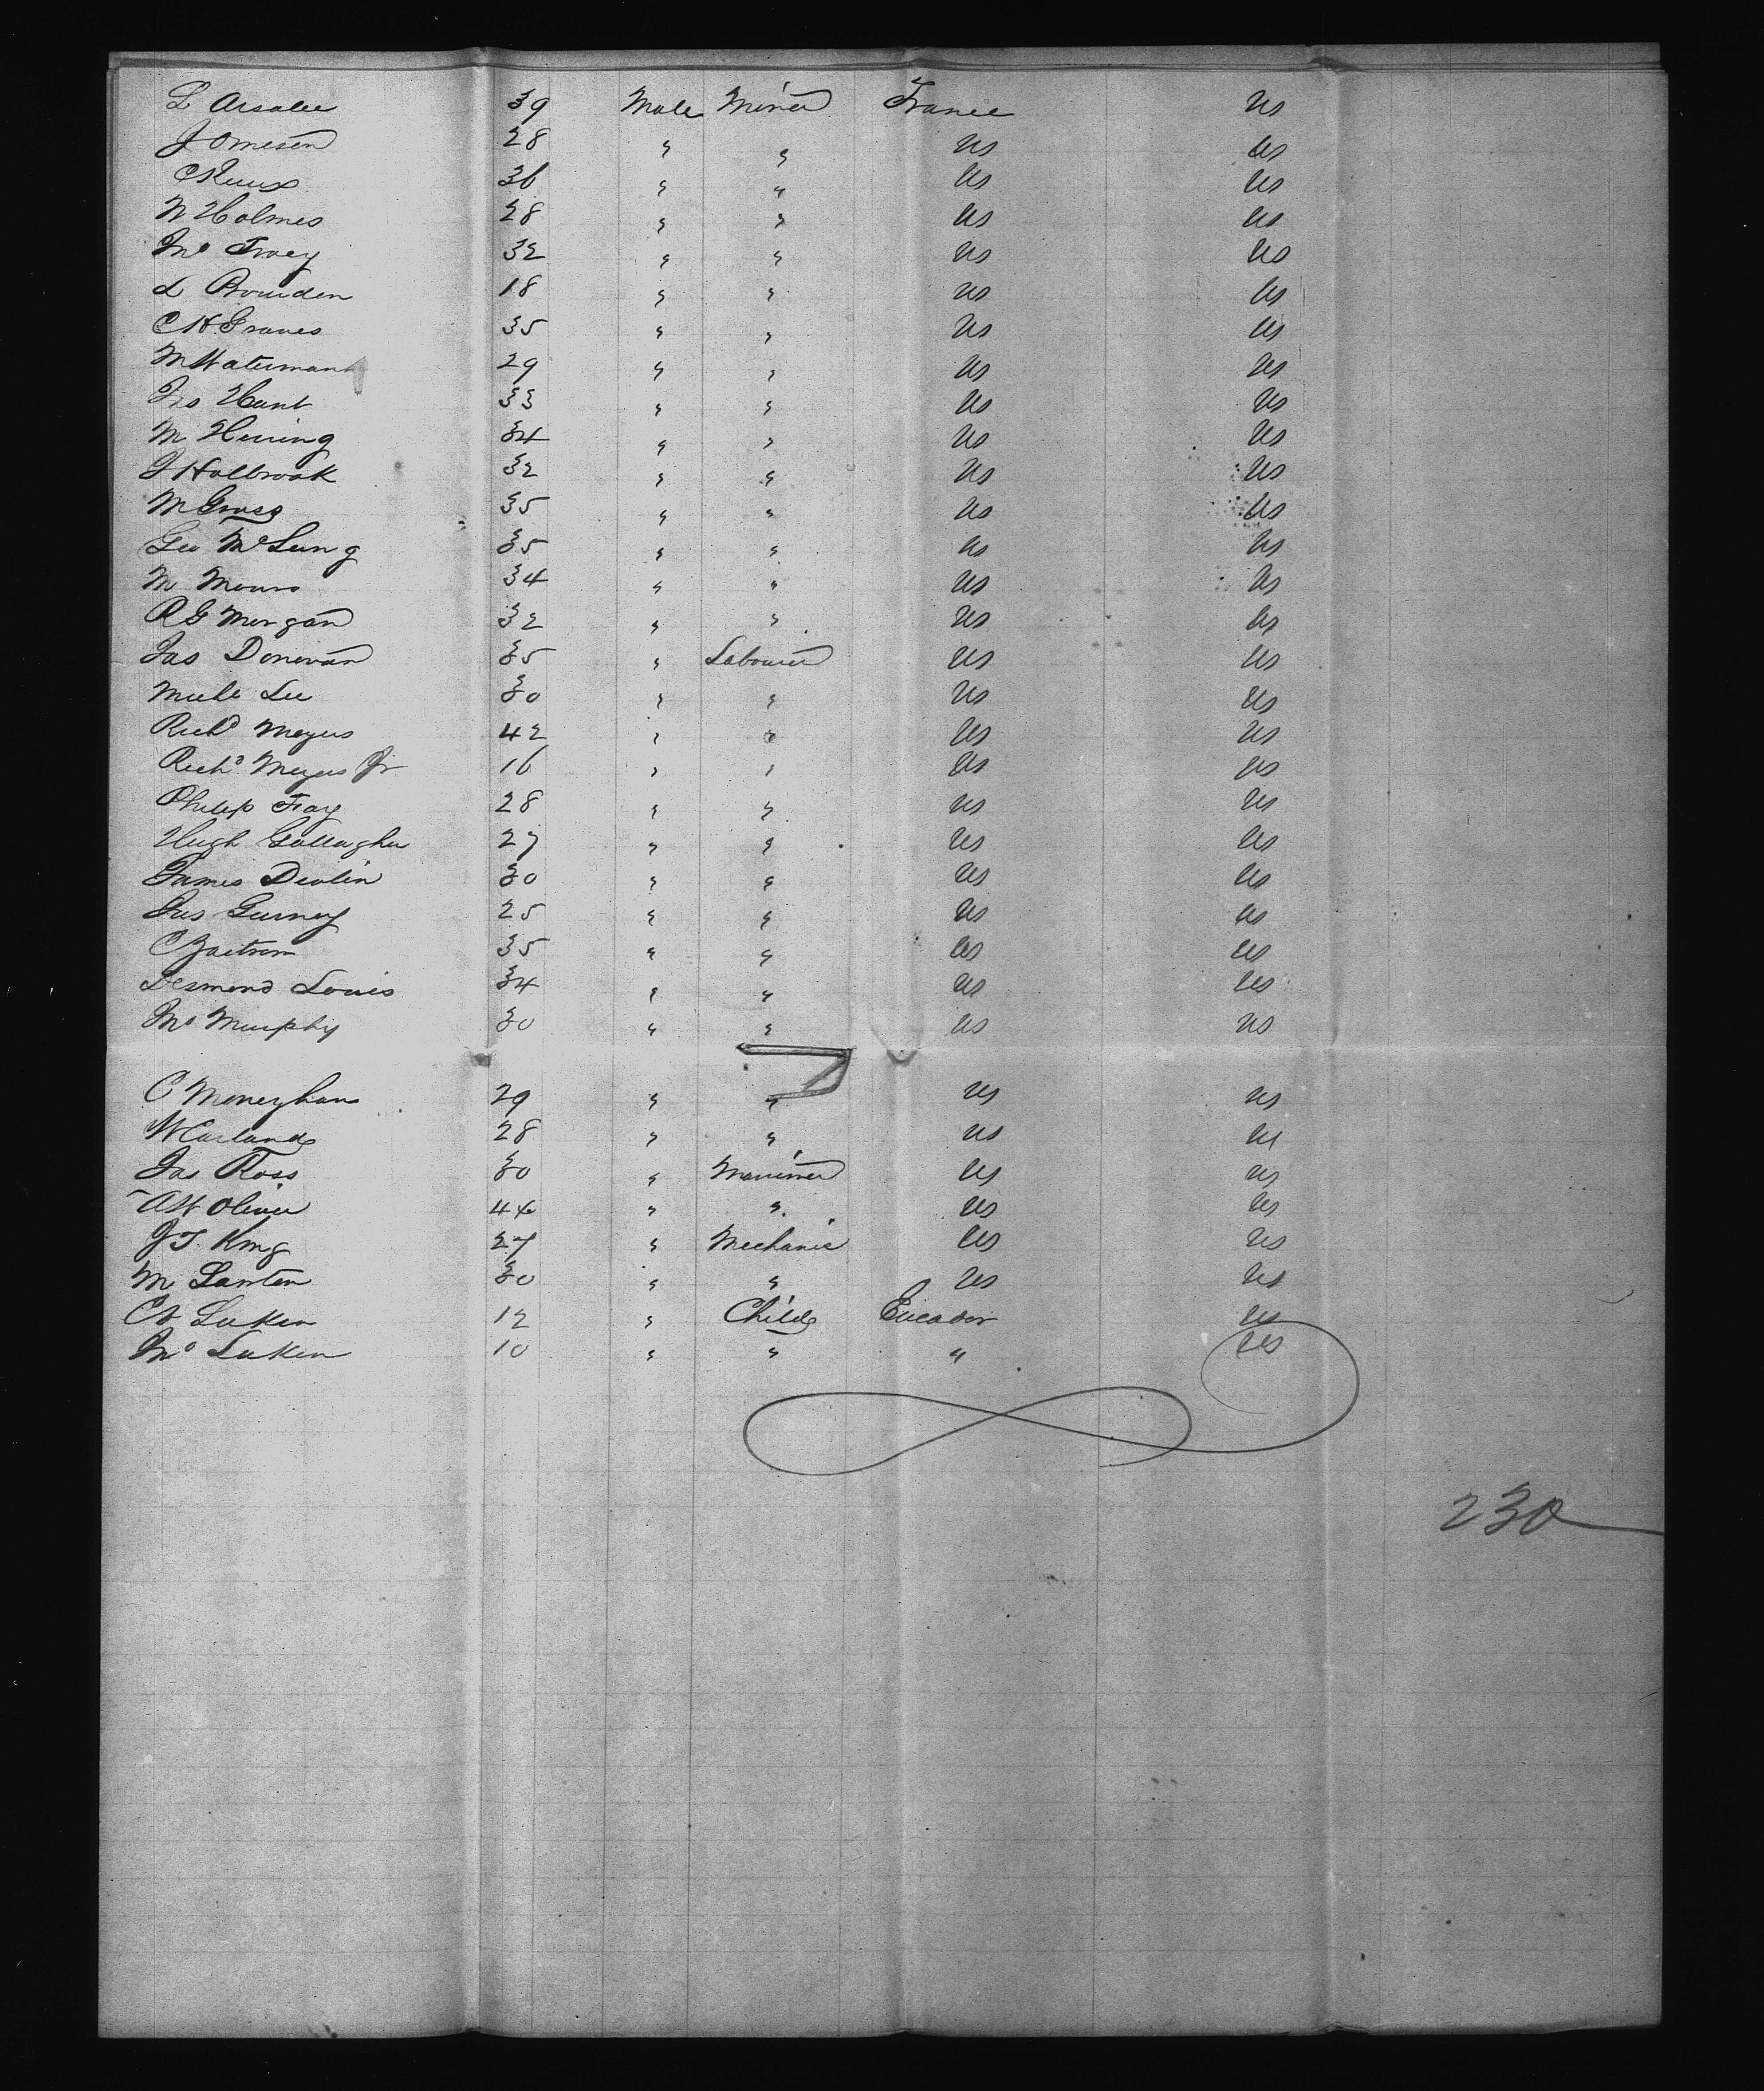 L Arsalee 39 Male Miner France US
J Omesen 28 " " US US
C Reux 36 " " US US
W Holmes 28 " " US US
Jno Tracy 32 " " US US
L Bowden 18 " " US US
C H Graves 35 " " US US
M Waterman 29 " " US US
Jno Hunt 33 " " US US
M Herring 34 " " US US
J Holbrook 32 " " US US
M Gross 35 " " US US
Geo McLung 35 " " US US
M 34 " " US US
R G Morgan 32 " " US US
Jas Donovan 35 " Labourer US US
Michl Lee 30 " " US US
Richd Meyers 42 " " US US
Richd Meyers Jr 16 " " US US
Philip Fay 28 " " US US
Hugh Gallagher 27 " " US US
James Devlin 30 " " US US
Jas Gurney 25 " " US US
C 35 " " US US
Desmond Louis 34 " " US US
Jno Murphy 30 " " US US
C Moneyhan 29 " " US US
W Carland 28 " " US US
Jas Ross 30 " Mariner US US
A H Oliver 44 " " US US
J T King 27 " Mechanic US US
M Lawton 30 " " US US
C A Luken 12 " Child Eucador US
Jno Luken 10 " " " US
230